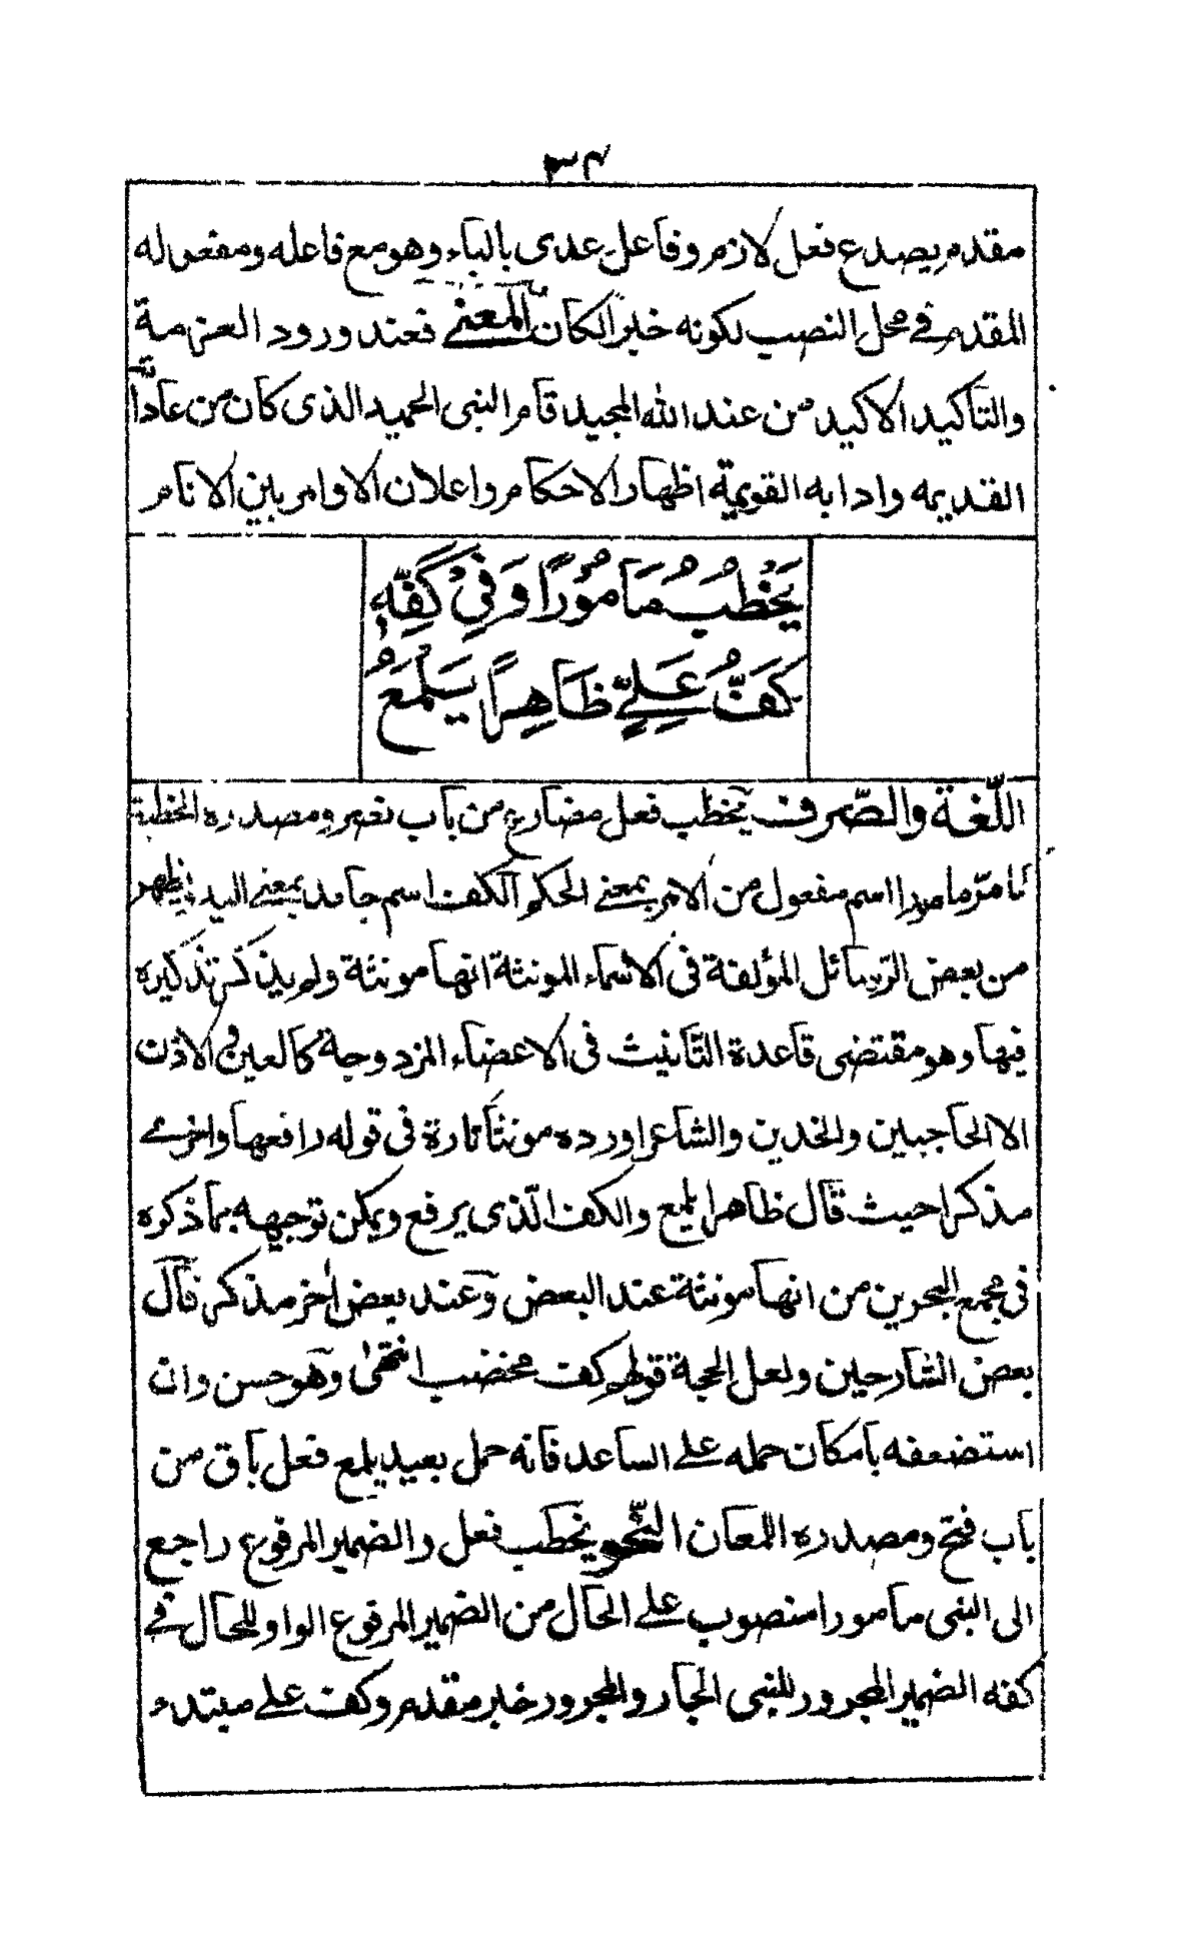 ٣٤
مقدم يصدع فعل لازم وفاعل عدى بالباء وهو مع فاعله ومفعوله
المقدم في محل النصب لكونه خبر الكان المعنى فعند ورود العزمة
والتأكيد الاكيد من عند الله المجيد قام النبى الحميد الذى كان من عاداته
القديمه وادابه القويمة اظهار الاحكام واعلان الاوامر بين الانام
يَخْطُبُ مَامُوْرًا وَفِيْ كَفِّهٖ
كَفُّ عَلِيٍّ ظَاهِرًا يَلْمَعُ
اللّغة والصّرف يخطب فعل مضارع من باب نصر ومصدره الخطبة
كما مرّ مامورا اسم مفعول من الامر بمعنى الحكم الكف اسم جامد بمعنى اليد يظهر
من بعض الرسائل المؤلفة فى الاسماء المونثة انها مونثة ولم يذكر تذكيره
فيها وهو مقتضى قاعدة التأنيث فى الاعضاء المزدوجة كالعين والاذن
الا الحاجبين والخدين والشاعر اورده مونثا تارة فى قوله رافعها واخرى
مذكرا حيث قال ظاهرا يلمع والكف الّذى يرفع ويمكن توجيهه بما ذكره
فى مجمع البحرين من انها مونثة عند البعض وعند بعض اٰخر مذكر قال
بعض الشارحين ولعل الحجة قولهم كف مخضب انتهٰى وهو حسن وان
استضعفه بامكان حمله على الساعد فانه حمل بعيد يلمع فعل باق من
باب فتح ومصدره اللمعان النّحو يخطب فعل والضمير المرفوع راجع
الى النبى مامورا منصوب على الحال من الضمير المرفوع الواو للحال فى
كفه الضمير المجرور للنبى الجار والمجرور خبر مقدم وكف على مبتدء